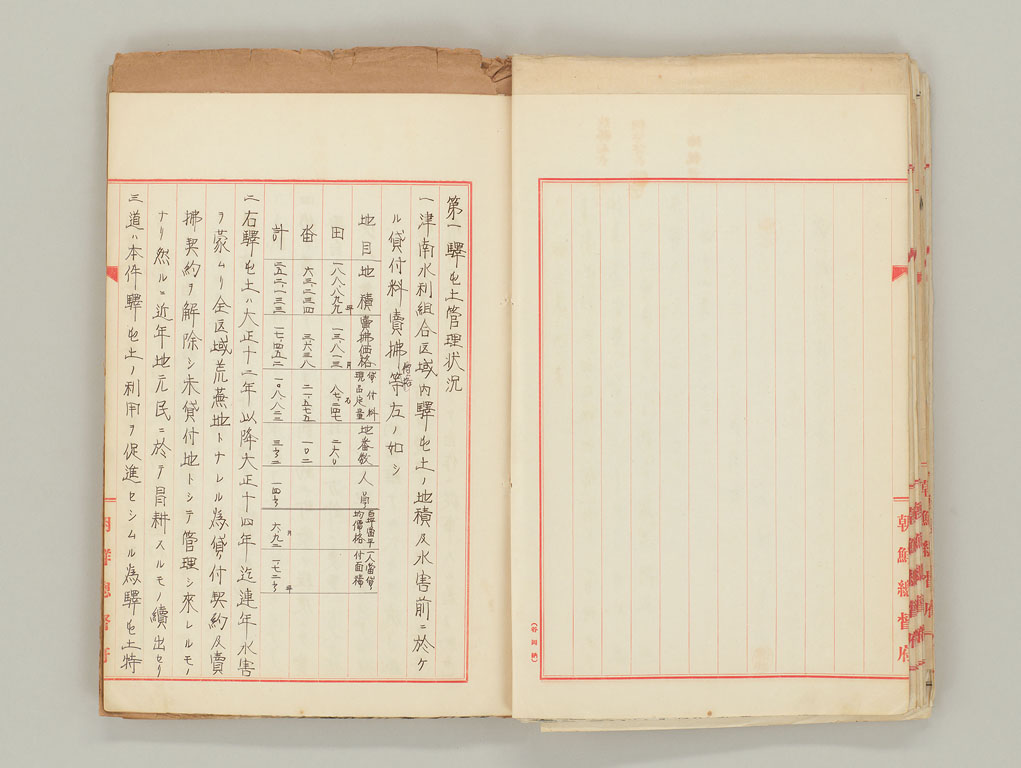 第一 驛屯土管理状况
一 津南水利組合区域内驛屯土ノ地積及水害前ニ於ケ
ル貸付料賣拂價格等左ノ如シ
地目 地積 賣拂価格 貸付料現品定量 地番数 人員 百坪當平均價格 一人當貸付面積
田 一八八、八九九坪 一三、八一三円 二六〇
畓 六三、二三四 三、六三八 二一、五七五 一〇二
計 二五二、一三三 一七、四五一 三六二 六、九二円
二 右驛屯土ハ大正十一年以降大正十四年迄連年水害
ヲ蒙ムリ全区域荒蕪地トナレル爲貸付契約及賣
拂契約ヲ解除シ未貸付地トシテ管理シ來レルモノ
ナリ然ルニ近年地元民ニ於テ冒耕スルモノ續出セリ
三 道ハ本件驛屯土ノ利用ヲ促進セシムル爲驛屯土特
朝鮮總督府
朝鮮總督府